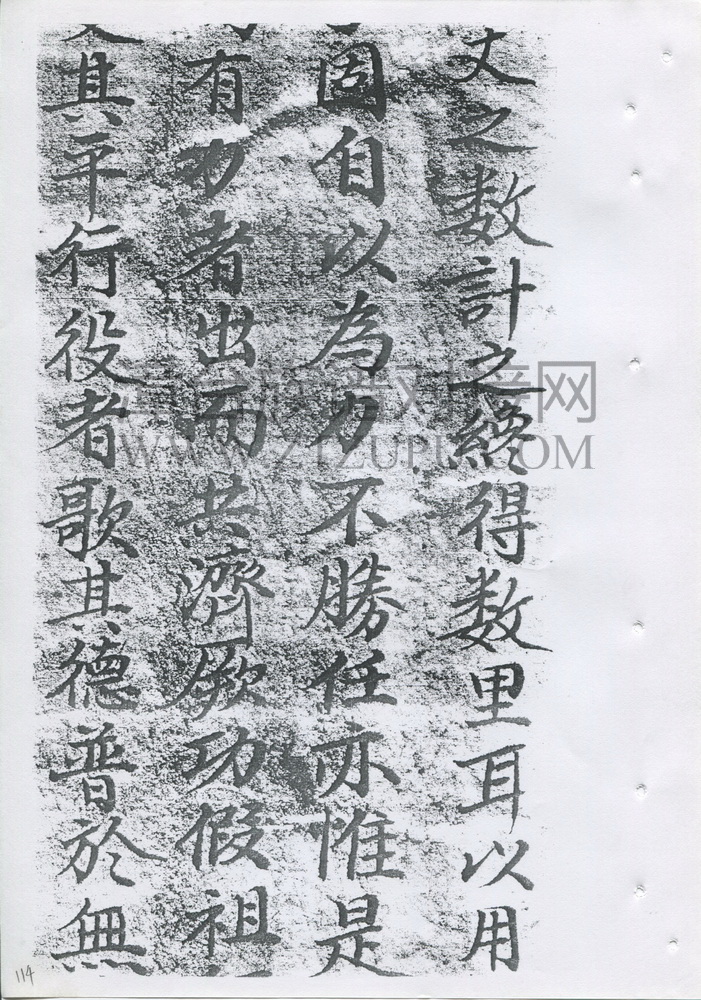 丈之数計之終得数里耳以用
固自以為力不勝任亦惟是
有力者出而共濟厥功假祖
具平行役者歌其德普於無
WWW.ZTZUPU.COM
114